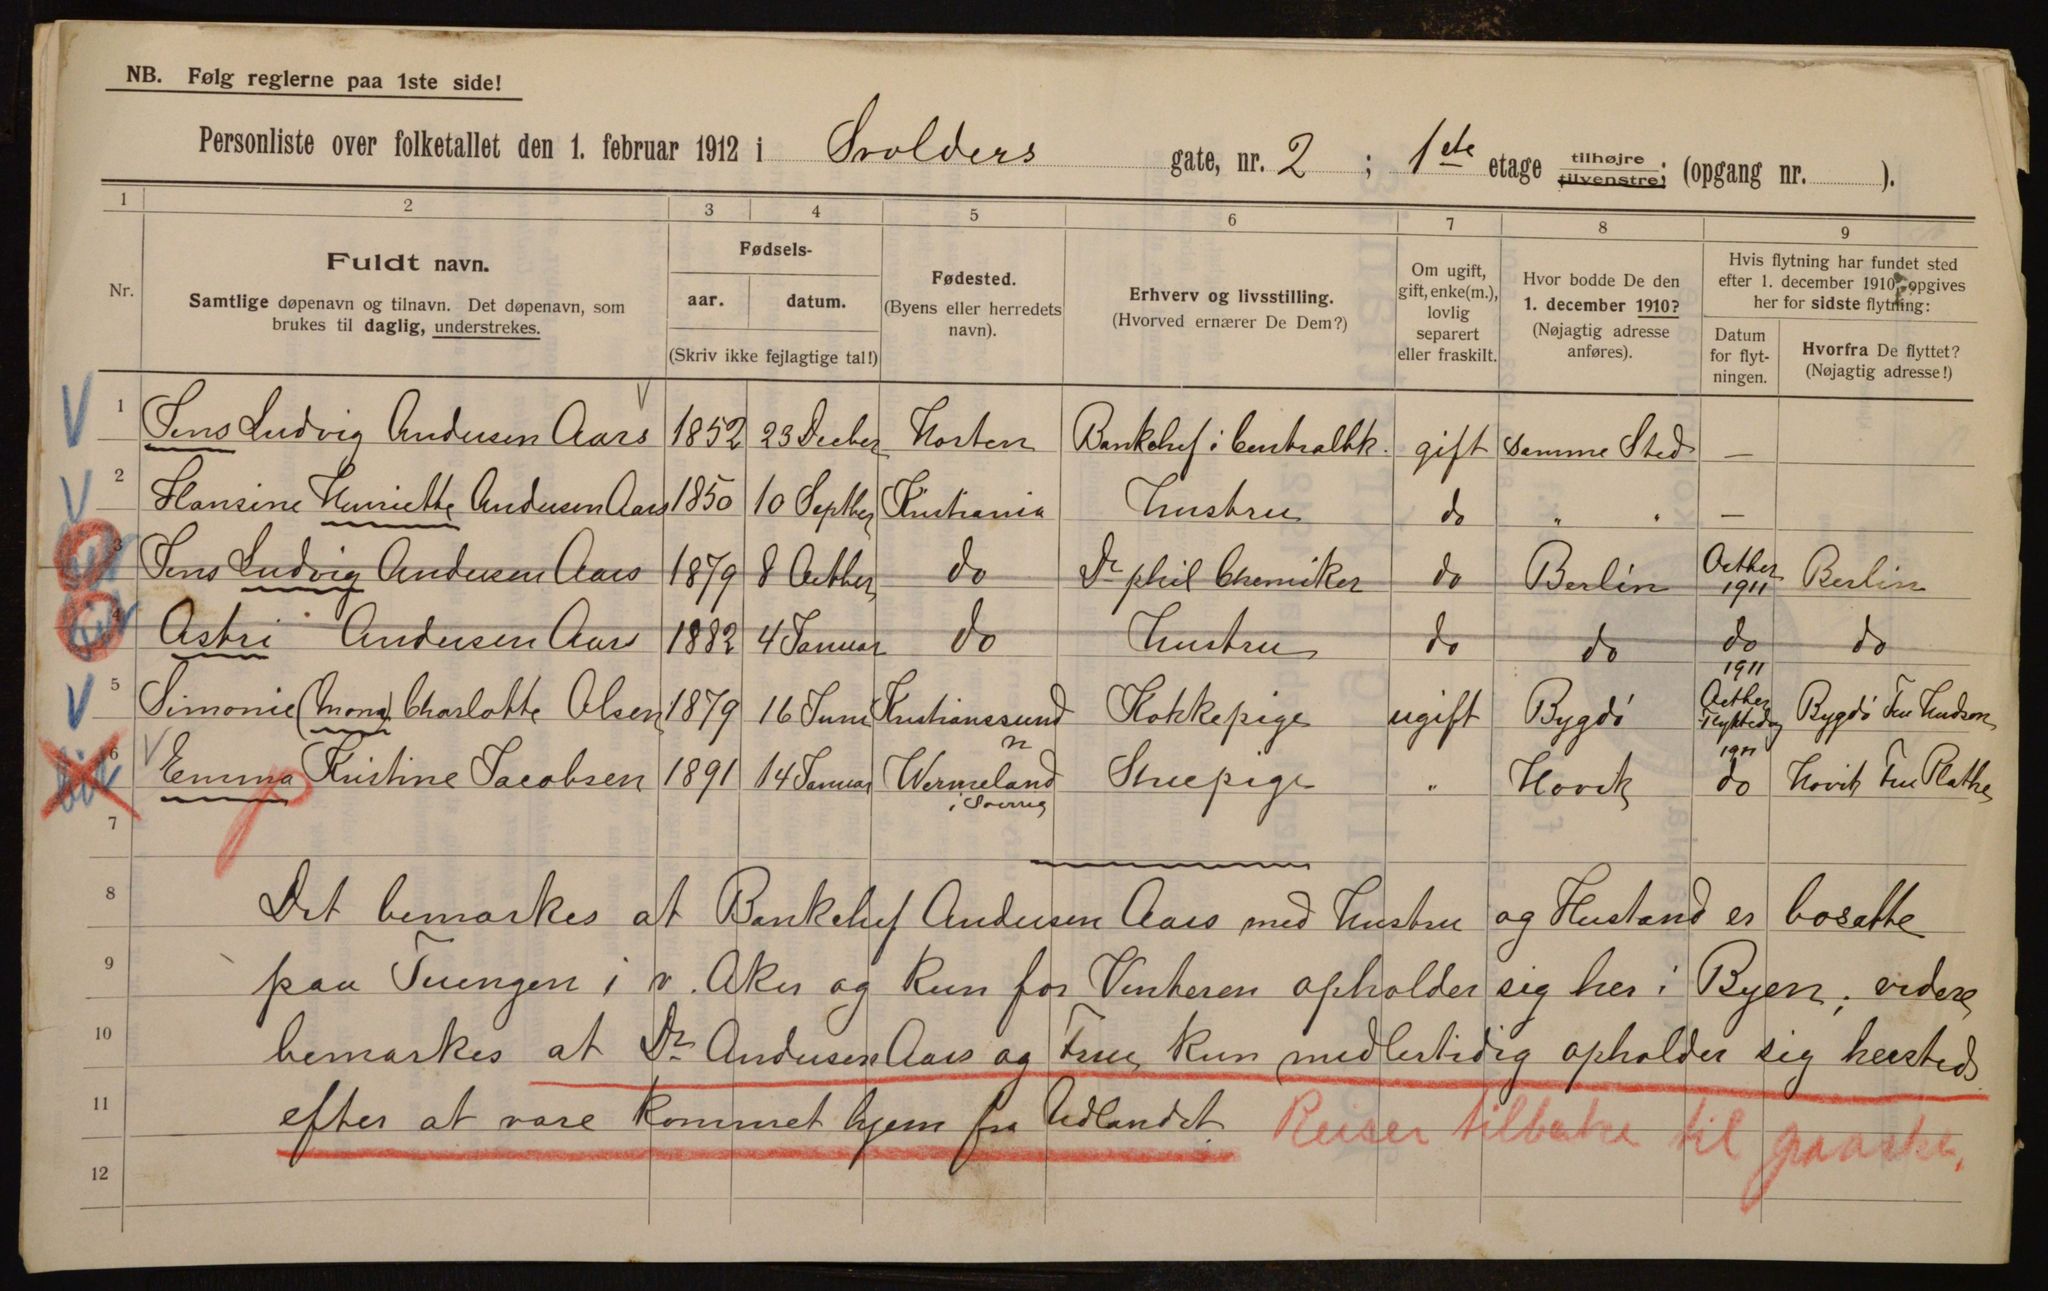 NB. Følg reglerne paa 1ste side!
Personliste over folketallet den 1. februar 1912 i Svolders gate, nr. 2 ; 1ste etage tilhøjre tilvenstre; (opgang nr. ).
1 2 3 4 5 6 7 8 9
Nr.
Fuldt navn.
Samtlige døpenavn og tilnavn. Det døpenavn, som
brukes til daglig, understrekes.
Fødsels-
aar. datum.
(Skriv ikke fejlagtige tal!)
Fødested.
(Byens eller herredets
navn).
Erhverv og livsstilling.
(Hvorved ernærer De Dem?)
Om ugift,
gift, enke(m.),
lovlig
separert
eller fraskilt.
Hvor bodde De den
1. december 1910?
(Nøjagtig adresse
anføres).
Hvis flytning har fundet sted
efter 1. december 1910, opgives
her for sidste flytning:
Datum
for flyt-
ningen.
Hvorfra De flyttet?
(Nøjagtig adresse!)
1 Jens Ludvig Andersen Aars 1852 23 Decber Horten Bankchef i Centralbk. gift Samme Sted —
2 Hansine Henriette Andersen Aars 1850 10 Septber Kristiania Hustru do " " —
3 Jens Ludvig Andersen Aars 1879 8 Octber do Dr phil Chemiker do Berlin Octber 1911 Berlin
4 Astri Andersen Aars 1882 4 Januar do Hustru do do do do
5 Simonie (Mona) Charlotte Olsen 1879 16 Juni Kristianssund n Kokkepige ugift Bygdö 1911 Octber Flyttedag Bygdö Fru Knudson
6 Emma Kristine Jacobsen 1891 14 Januar Wermeland i Sverrig Stuepige " Hovik 1911 do Hovik Fru Plathe
7
8 Det bemærkes at Bankchef Andersen Aars med Hustru og Husstand er bosatte
9 paa Tuengen i v. Aker og kun for Vinteren opholder sig her i Byen; videre
10 bemærkes at Dr Andersen Aars og Frue kun midlertidig opholder sig hersteds
11 efter at være kommet hjem fra Udlandet. Reiser tilbake til paaske.
12